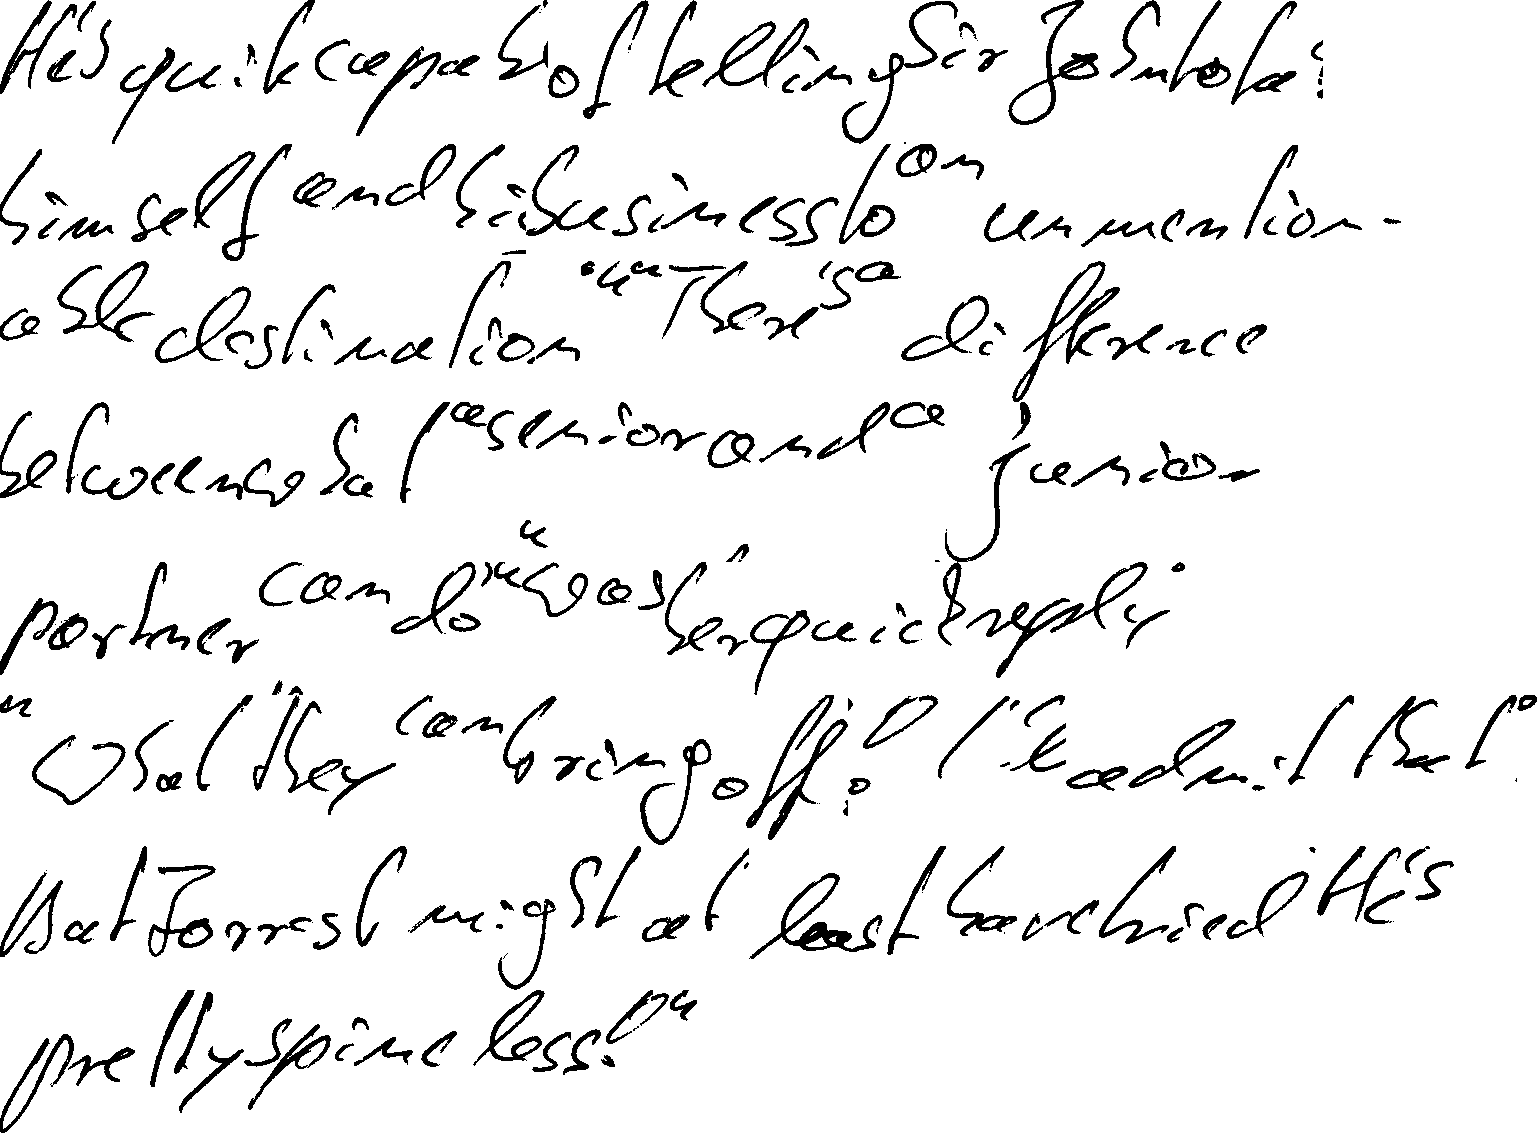 He's quite capable of telling Sir John to take
himself and his business to an unmention-
able destination." "There's a difference
between what a senior and a junior
partner can do" was her quick reply.
"What they can bring off? I'll admit that.
But Forrest might at least have tried. He's
pretty spineless!"